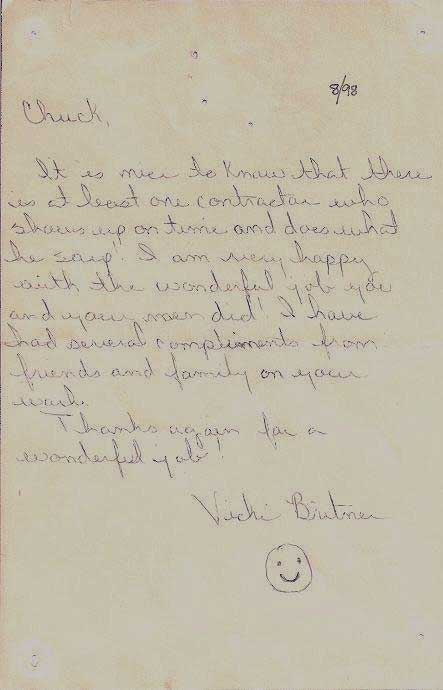 8/98
Chuck,
It is nice to know that there
is at least one contractor who
shows up on time and does what
he says! I am very happy
with the wonderful job you
and your men did! I have
had several compliments from
friends and family on your
work.
Thanks again for a
wonderful job!
Vicki